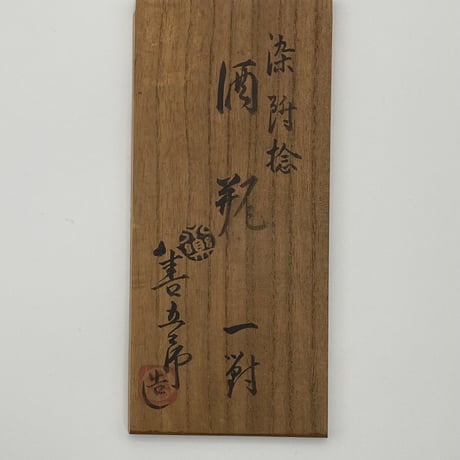 染附捻
酒瓶
一對
善五郎
造